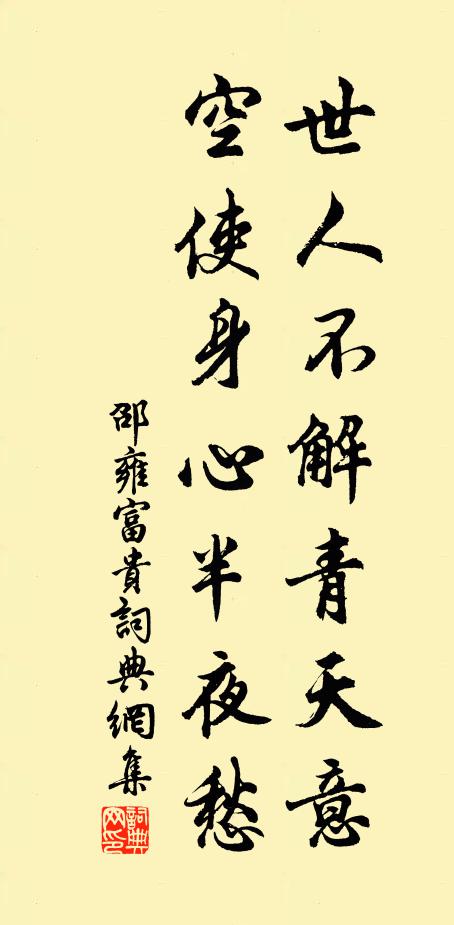 世人不解青天意
空使身心半夜愁
邵雍富貴詞典網集
詞典
网印